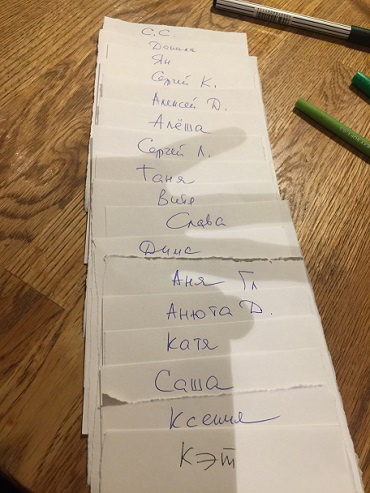 С.С.
Дашка
Ян
Сергей К.
Алексей Д.
Алёша
Сергей Л.
Таня
Витя
Слава
Денис
Аня Гл
Анюта Д.
Катя
Саша
Ксения
Кэт